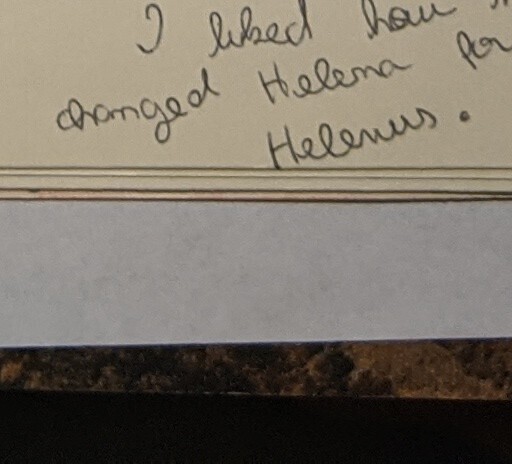 I liked how
changed Helena for
Helenus.